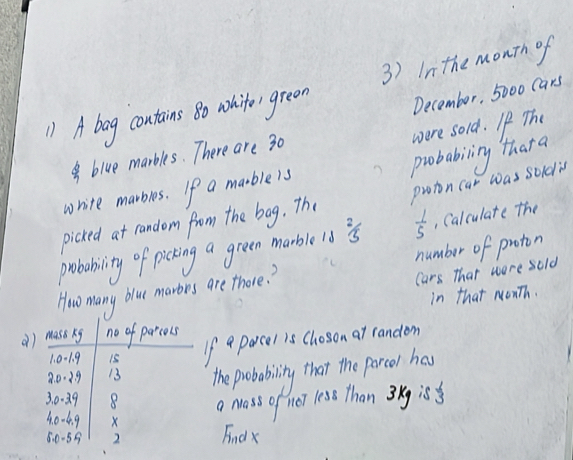 1) A bag contains 80 white, green
& blue marbles. There are 30
white marbles. If a marble is
picked at random from the bag. The
probability of picking a green marble is 2/5
How many blue marbles are there?
2) mass kg | no of parcels
1.0-1.9 | 15
2.0-2.9 | 13
3.0-3.9 | 8
4.0-4.9 | x
5.0-5.9 | 2
If a parcel is chosen at random
the probability that the parcel has
a mass of not less than 3kg is 1/3
Find x
3) In the month of
December, 5000 cars
were sold. If The
probability that a
proton car was sold is
1/5, calculate the
number of proton
cars that were sold
in that month.